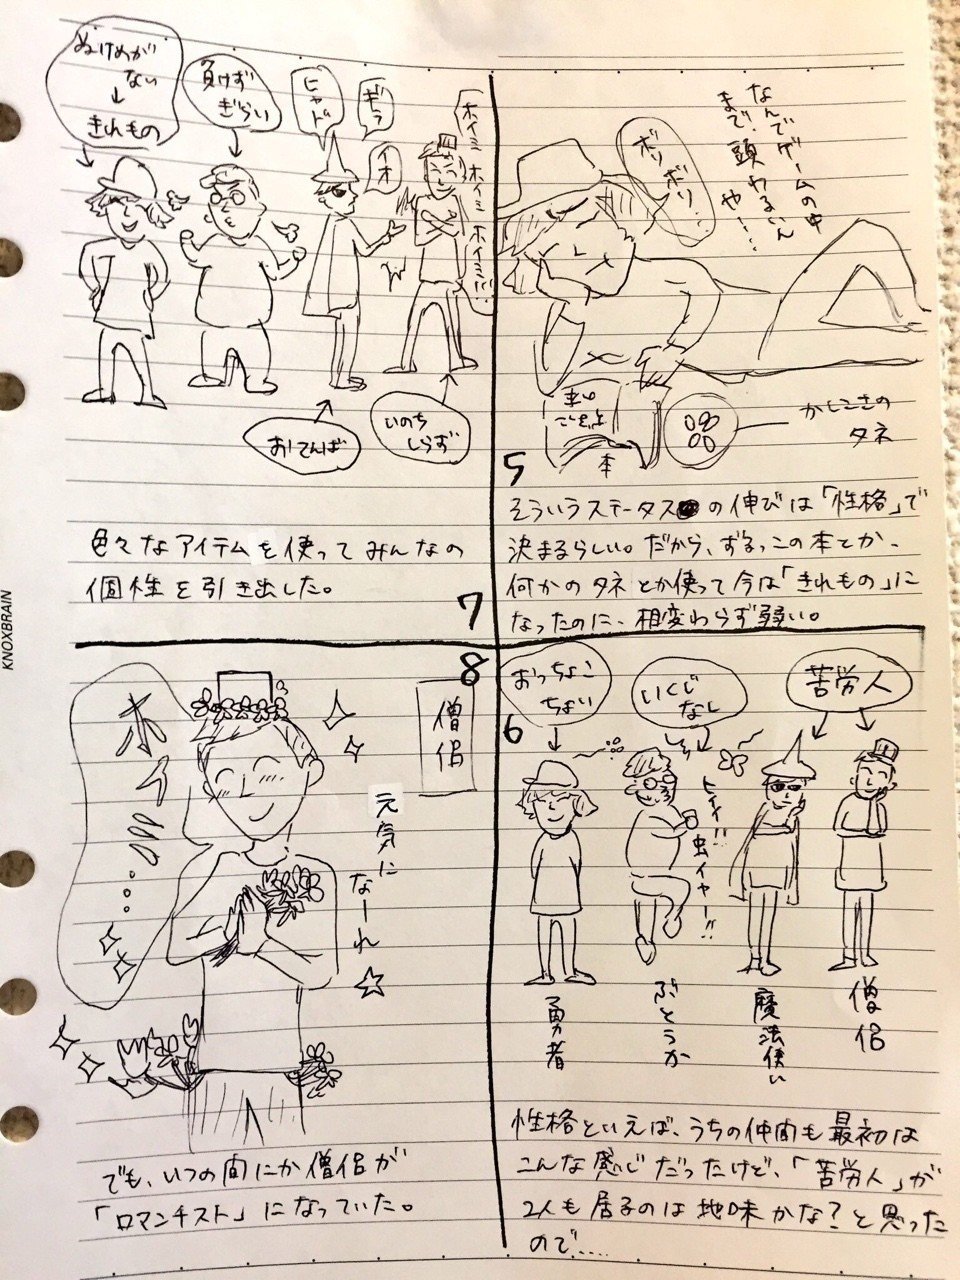 なんでゲームの中
まで、頭わるいん
や一……
ボリ
ボリ…
かしこさの
タネ
本
5
そういうステータスの伸びは「性格」で
決まるらしい。だから、ずるっこの本とか、
何かのタネとか使って今は「きれもの」に
なったのに、相変わらず弱い。
おっちょこ
ちょい
いくじ
なし
苦労人
6
ヒィィ!!
虫イヤー!!
勇者
ぶとうか
魔法使い
僧侶
性格といえば、うちの仲間も最初は
こんな感じだったけど、「苦労人」が
2人も居るのは地味かな?と思った
ので……
ぬけめが
ない
↓
きれもの
負けず
ぎらい
ヒャド
ギラ
イオ
ホイミ
ホイミ
ホイミ…
おてんば
いのち
しらず
色々なアイテムを使ってみんなの
個性を引き出した。
7
8
僧侶
ホイミ…
元気に
なーれ☆
でも、いつの間にか僧侶が
「ロマンチスト」になっていた。
KNOXBRAIN